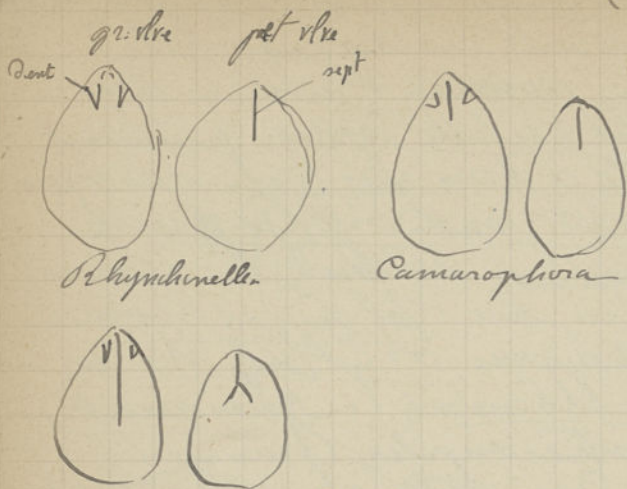 gr. vlve pet vlve
Dent sept
Rhynchonella Camarophora